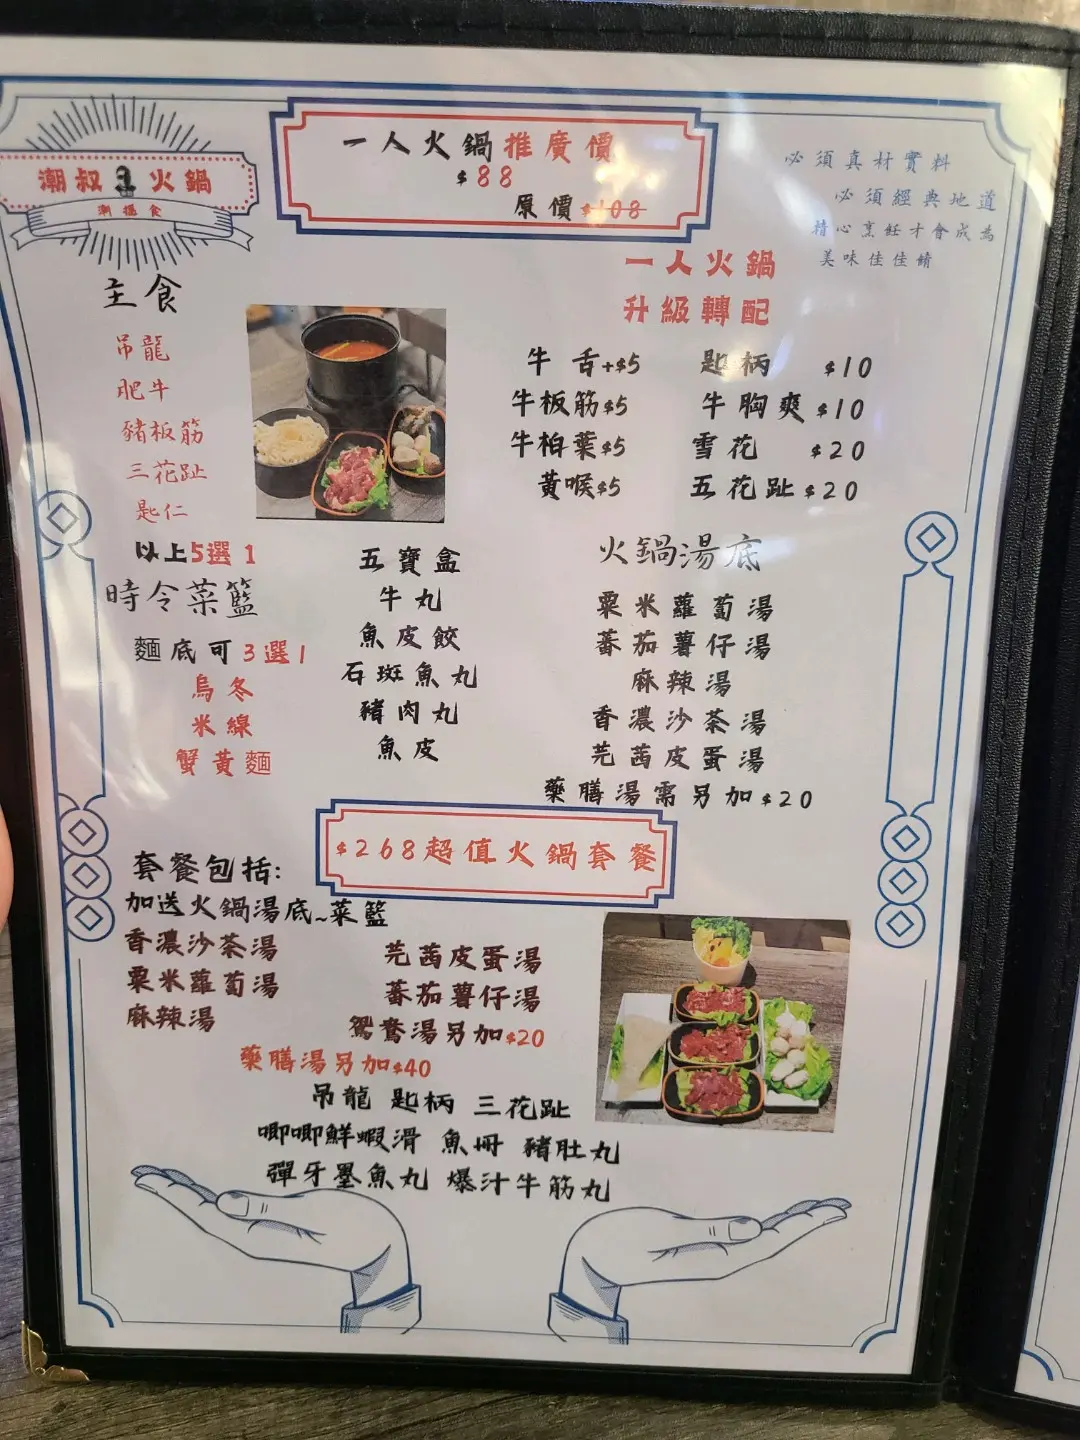 潮叔火鍋
一人火鍋推廣價
$88
原價$108
必須真材實料
必須經典地道
精心烹飪才會成為
美味佳佳餚
主食
吊龍
肥牛
豬板筋
三花趾
匙仁
以上5選1
時令菜籃
麵底可3選1
烏冬
米線
蟹黃麵
一人火鍋
升級轉配
牛舌+$5 匙柄 $10
牛板筋$5 牛胸爽$10
牛柏葉$5 雪花 $20
黃喉$5 五花趾$20
五寶盒
牛丸
魚皮餃
石斑魚丸
豬肉丸
魚皮
火鍋湯底
粟米蘿蔔湯
蕃茄薯仔湯
麻辣湯
香濃沙茶湯
芫茜皮蛋湯
藥膳湯需另加$20
$268超值火鍋套餐
套餐包括:
加送火鍋湯底~菜籃
香濃沙茶湯 芫茜皮蛋湯
粟米蘿蔔湯 蕃茄薯仔湯
麻辣湯 鴛鴦湯另加$20
藥膳湯另加$40
吊龍 匙柄 三花趾
唧唧鮮蝦滑 魚冊 豬肚丸
彈牙墨魚丸 爆汁牛筋丸